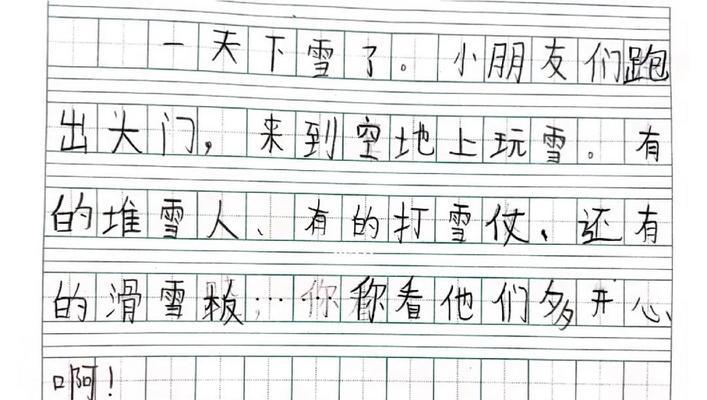 一天下雪了。小朋友们跑
出头门，来到空地上玩雪。有
的堆雪人、有的打雪仗、还有
的滑雪板…你看他们多开心
啊！